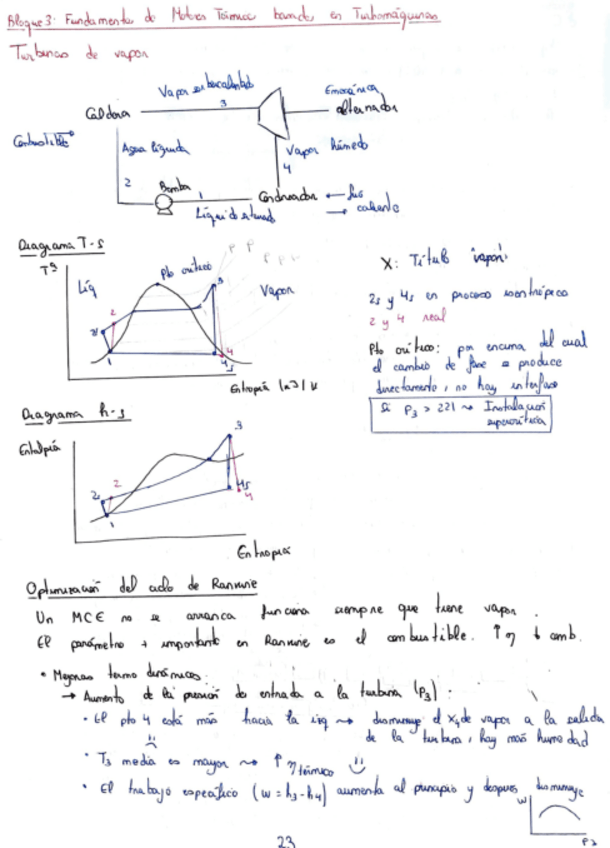 Bloque 3: Fundamentos de Motores Térmicos basados en Turbomáquinas
Turbinas de vapor
Vapor sobrecalentado
3
Caldera
Emecánica
alternador
Combustible
Agua líquida
Vapor húmedo
4
2
Bomba
1
Condensador
frío
caliente
Líquido saturado
Diagrama T-s
Tª
Líq
Pto crítico
P P P P
Vapor
3
2
2s
1
4s
4
Entropía
X: Título vapor
2s y 4s en proceso isentrópico
2 y 4 real
Pto crítico: por encima del cual
el cambio de fase se produce
directamente, no hay interfase
Si P3 > 221 → Instalación
supercrítica
Diagrama h-s
Entalpía
3
2
2s
1
4s
4
Entropía
Optimización del ciclo de Rankine
Un MCE no se arranca funciona siempre que tiene vapor.
El parámetro + importante en Rankine es el combustible. ↑η ↓ comb.
• Mejoras termodinámicas:
→ Aumento de la presión de entrada a la turbina (P3):
• El pto 4 está más hacia la izq → disminuye el X4 de vapor a la salida
de la turbina, hay más humedad
• T3 media es mayor → ↑ η térmico
• El trabajo específico (w = h3 - h4) aumenta al principio y después disminuye
w
P3
23